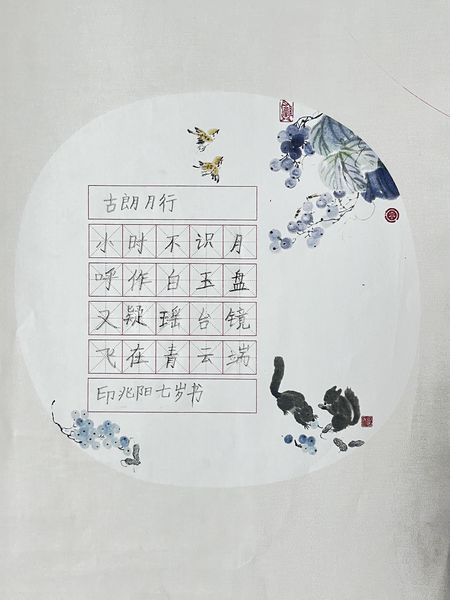 古朗月行
小时不识月
呼作白玉盘
又疑瑶台镜
飞在青云端
印兆阳七岁书